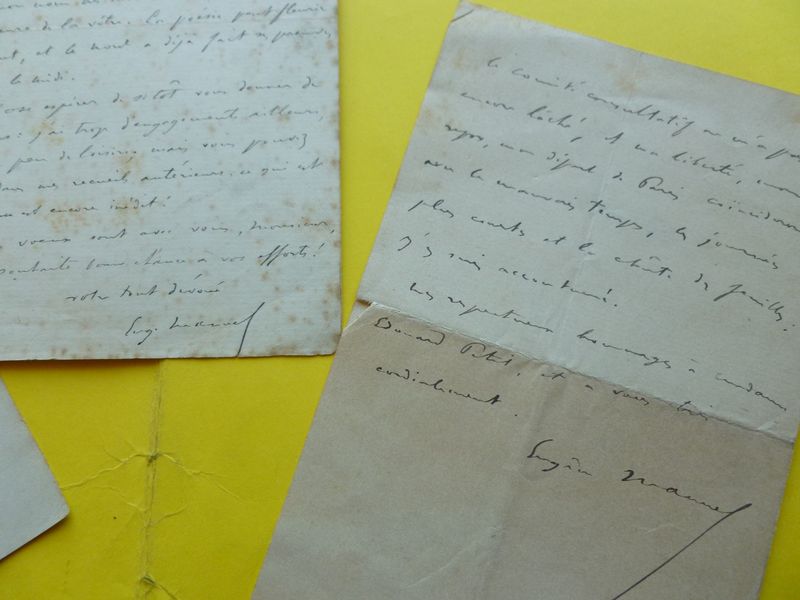 de la vôtre. La poésie peut fleurir
et le nord a déjà fait
le midi.
espérer de sitôt vous donner de
j'ai trop d'engagements ailleurs,
peu de loisirs, mais vous pouvez
mes recueils antérieurs, ce qui est
est encore inédit!
voeux sont avec vous, monsieur,
souhaite bonne chance à vos efforts!
votre tout dévoué
Eug. Manuel
le Comité consultatif ne m'a pas
encore lâché, et ma liberté, mon
repos, mon départ de Paris
avec le mauvais temps, les journées
plus courtes et la chute des feuilles:
j'y suis accoutumé.
Mes respectueux hommages à madame
Edouard Petit, et à vous bien
cordialement.
Eugène Manuel